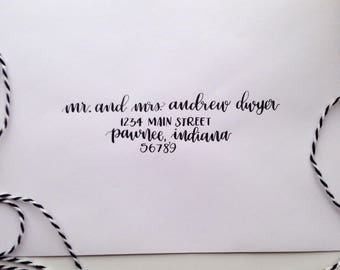 mr. and mrs. andrew dwyer
1234 MAIN STREET
pawnee, indiana
56789